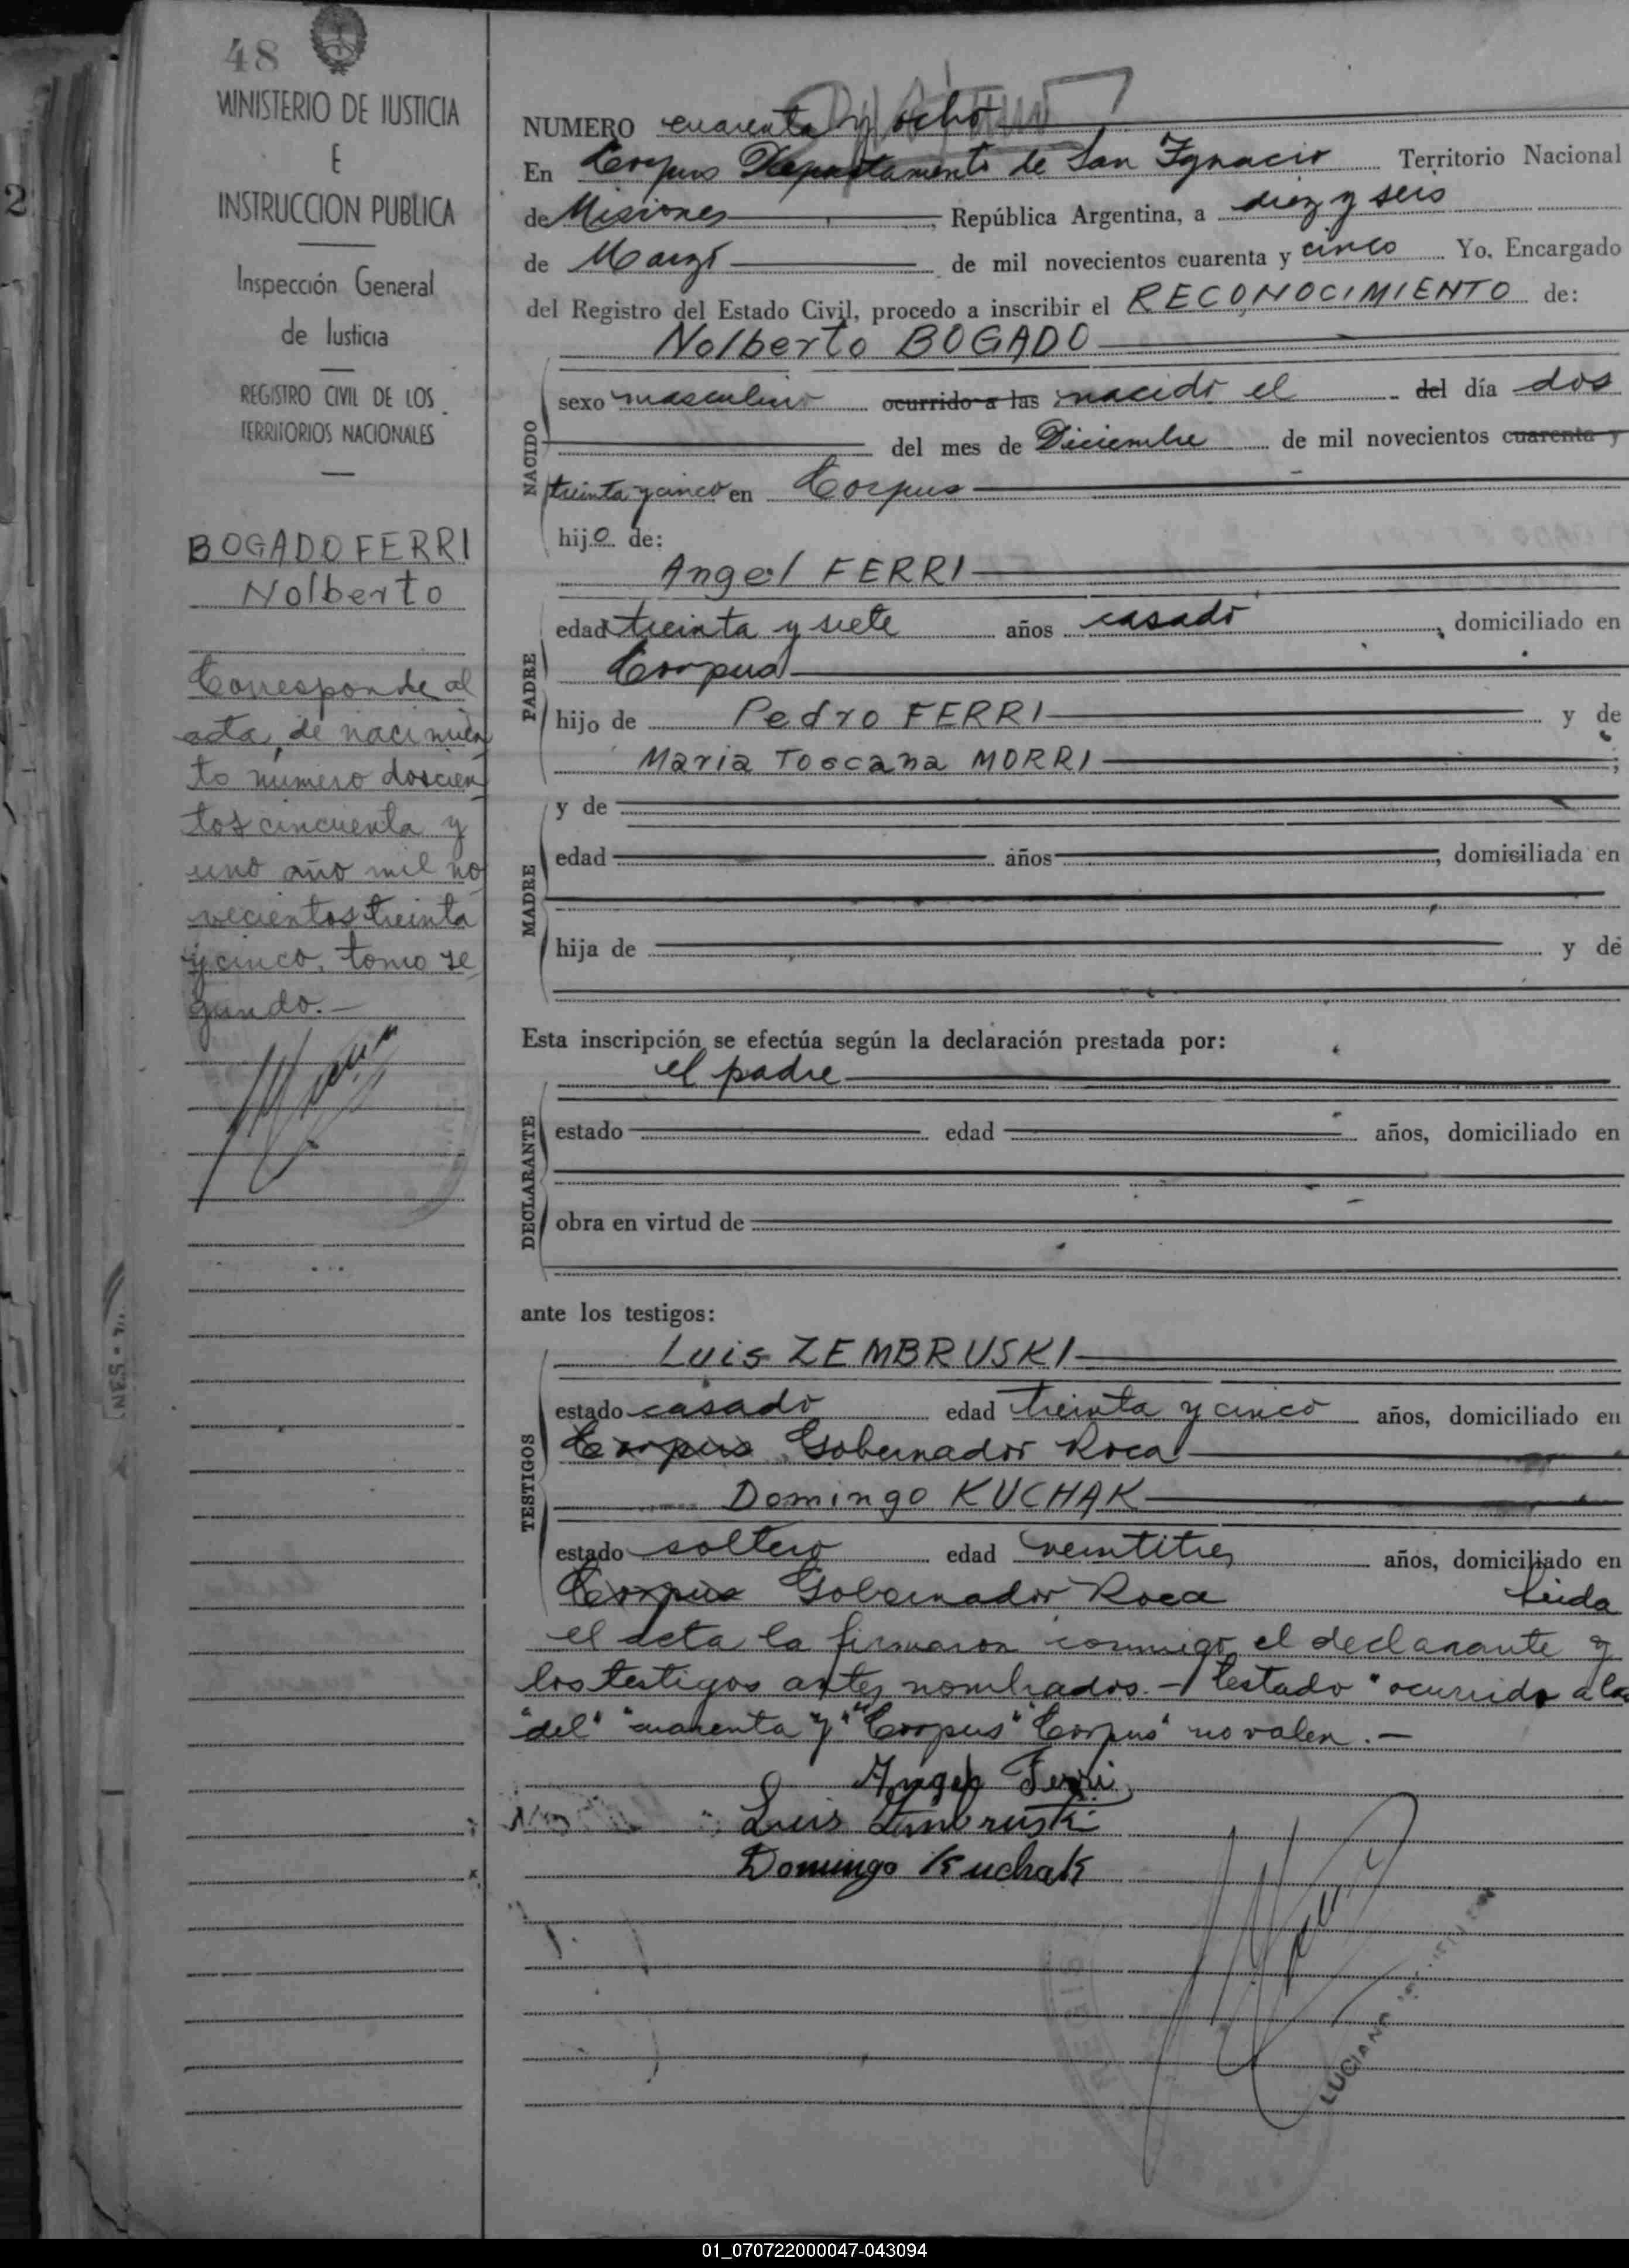 48
MINISTERIO DE JUSTICIA
E
INSTRUCCION PUBLICA
Inspección General
de Justicia
REGISTRO CIVIL DE LOS
TERRITORIOS NACIONALES
BOGADO FERRI
Nolberto
Corresponde al
acta, de nacimien
to numero doscien
tos cincuenta y
uno año mil no
vecientos treinta
y cinco, tomo se
gundo.-
2
NUMERO cuarenta y ocho
En Corpus Departamento de San Ygnacio Territorio Nacional
de Misiones, República Argentina, a diez y seis
de Marzo de mil novecientos cuarenta y cinco Yo, Encargado
del Registro del Estado Civil, procedo a inscribir el RECONOCIMIENTO de:
Nolberto BOGADO
NACIDO
sexo masculino ocurrido a las nacido el del día dos
del mes de Diciembre de mil novecientos cuarenta y
treinta y cinco en Corpus
hijo de:
Angel FERRI
PADRE
edad treinta y siete años casado, domiciliado en
Corpus
hijo de Pedro FERRI y de
Maria Toscana MORRI;
MADRE
y de
edad años, domiciliada en
hija de y de
Esta inscripción se efectúa según la declaración prestada por:
el padre
DECLARANTE
estado edad años, domiciliado en
obra en virtud de
ante los testigos:
TESTIGOS
Luis ZEMBRUSKI
estado casado edad treinta y cinco años, domiciliado en
Corpus Gobernador Roca
Domingo KUCHAK
estado soltero edad veintitres años, domiciliado en
Corpus Gobernador Roca Leida
el acta la firmaron conmigo el declarante y
los testigos antes nombrados.- Testado "ocurrido a las
"del" "cuarenta y" "Corpus" "Corpus" no valen.-
Angel Ferri
Luis Zembruski
Domingo Kuchak
LUCIANO
01_070722000047-043094